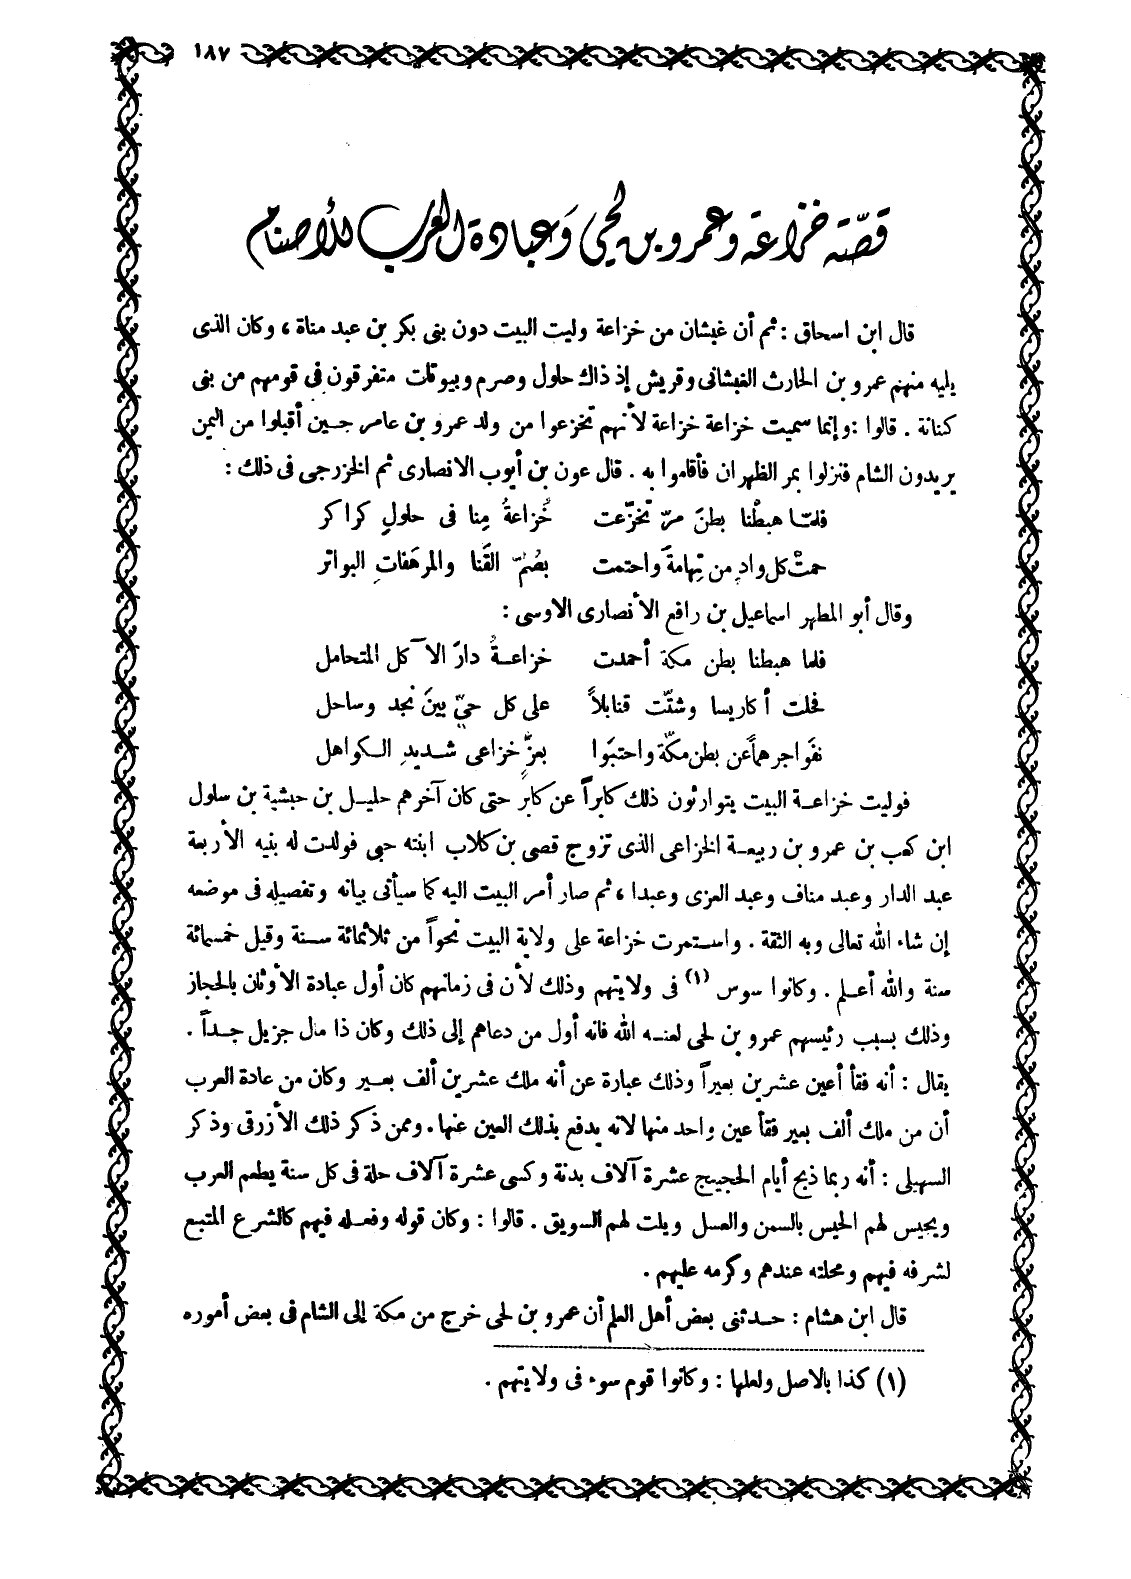 ١٨٧
قصّة خزاعة وعمرو بن لحي وَعبادة العرب للأصنام
قال ابن اسحاق : ثم أن غبشان من خزاعة وليت البيت دون بنى بكر بن عبد مناة ، وكان الذى
يليه منهم عمرو بن الحارث الغبشانى وقريش إذ ذاك حلول وصرم وبيوتات متفرقون فى قومهم من بنى
كنانة . قالوا : وإنما سميت خزاعة خزاعة لأنهم تخزعوا من ولد عمرو بن عامر حين أقبلوا من اليمن
يريدون الشام فنزلوا بمر الظهران فأقاموا به . قال عون بن أيوب الانصارى ثم الخزرجى فى ذلك :
فلمّا هبطْنا بطنَ مرّ تخزّعت خُزاعةُ مِنا فى حلولٍ كراكر
حمتْ كل وادٍ من تِهامةَ واحتمت بصُمّ القَنا والمرهَفاتِ البواتر
وقال أبو المطهر اسماعيل بن رافع الأنصارى الاوسى :
فلما هبطنا بطن مكة أحمدت خزاعةُ دارَ الآكل المتحامل
فحلت أكاريسا وشتّت قنابلاً على كل حيّ بينَ نجد وساحل
نفَوا جرهماً عن بطن مكّة واحتبَوا بعزٍّ خزاعى شديدِ الكواهل
فوليت خزاعة البيت يتوارثون ذلك كابراً عن كابرٍ حتى كان آخرهم حليل بن حبشية بن سلول
ابن كعب بن عمرو بن ربيعة الخزاعى الذى تزوج قصى بن كلاب ابنته حبى فولدت له بنيه الأربعة
عبد الدار وعبد مناف وعبد العزى وعبدا ، ثم صار أمر البيت اليه كما سيأتى بيانه وتفصيله فى موضعه
إن شاء الله تعالى وبه الثقة . واستمرت خزاعة على ولاية البيت نحواً من ثلاثمائة سنة وقيل خمسمائة
سنة والله أعلم . وكانوا سوس (١) فى ولايتهم وذلك لأن فى زمانهم كان أول عبادة الأوثان بالحجاز
وذلك بسبب رئيسهم عمرو بن لحى لعنه الله فانه أول من دعاهم إلى ذلك وكان ذا مال جزيل جداً .
يقال : أنه فقأ أعين عشرين بعيراً وذلك عبارة عن أنه ملك عشرين ألف بعير وكان من عادة العرب
أن من ملك ألف بعير فقأ عين واحد منها لانه يدفع بذلك العين عنها . وممن ذكر ذلك الأزرقى وذكر
السهيلى : أنه ربما ذبح أيام الحجيج عشرة آلاف بدنة وكسى عشرة آلاف حلة فى كل سنة يطعم العرب
ويحيس لهم الحيس بالسمن والعسل ويلت لهم السويق . قالوا : وكان قوله وفعله فيهم كالشرع المتبع
لشرفه فيهم ومحلته عندهم وكرمه عليهم .
قال ابن هشام : حدثنى بعض أهل العلم أن عمرو بن لحى خرج من مكة إلى الشام فى بعض أموره
(١) كذا بالاصل ولعلها : وكانوا قوم سوء فى ولايتهم .